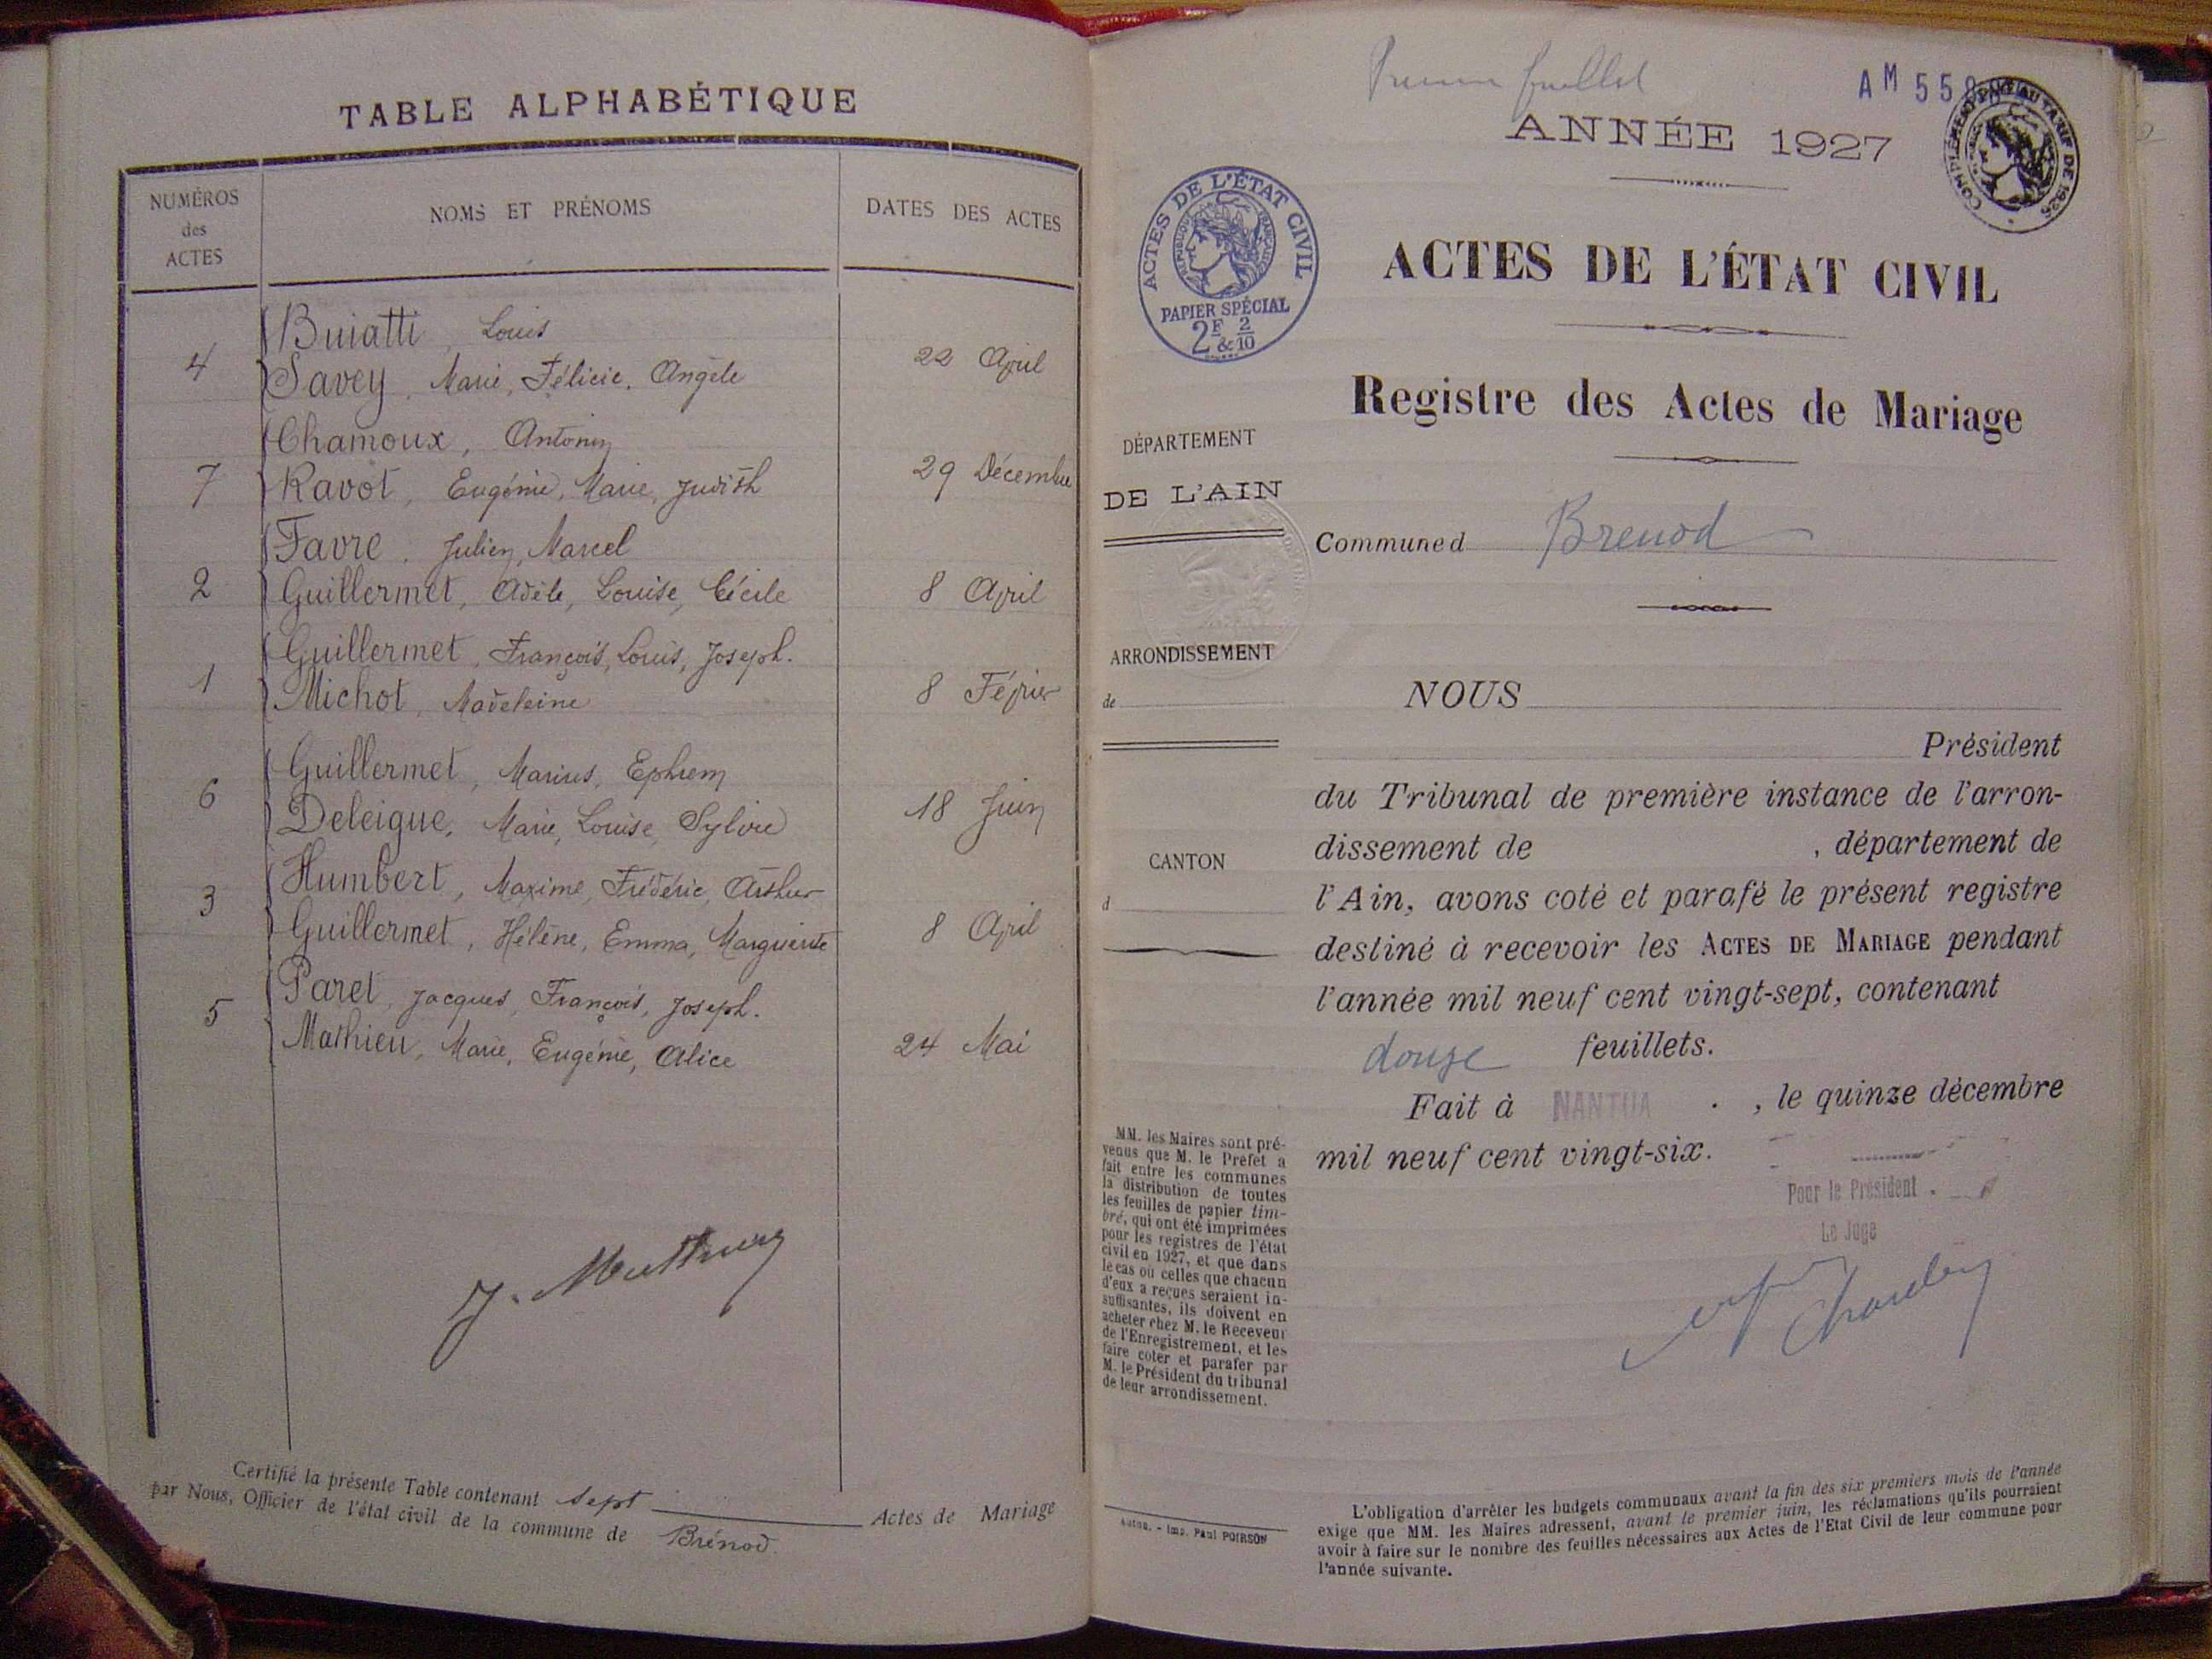 TABLE ALPHABÉTIQUE
NUMÉROS des ACTES
NOMS ET PRÉNOMS
DATES DES ACTES
Buiatti, Louis
4
Savey, Marie, Félicie, Angèle
22 April
Chamoux, Antonin
7
Ravot, Eugénie, Marie, Judith
29 Décembre
Favre, Julien, Marcel
2
Guillermet, Adèle, Louise, Cécile
8 April
Guillermet, François, Louis, Joseph.
1
Michot, Madeleine
8 Février
Guillermet, Marius, Ephrem
6
Deleigue, Marie, Louise, Sylvie
18 Juin
Humbert, Maxime, Frédéric, Arthur
3
Guillermet, Hélène, Emma, Marguerite
8 April
Paret, Jacques, François, Joseph.
5
Mathieu, Marie, Eugénie, Alice
24 Mai
Certifié la présente Table contenant sept Actes de Mariage
par Nous, Officier de l'état civil de la commune de Brénod.
Premier feuillet
AM 55
COMPLÉMENT PAYÉ AU TARIF DE 1926
ANNÉE 1927
ACTES DE L'ÉTAT CIVIL
RÉPUBLIQUE FRANÇAISE
PAPIER SPÉCIAL
2F & 2/10
ACTES DE L'ÉTAT CIVIL
Registre des Actes de Mariage
DÉPARTEMENT
DE L'AIN
Commune d Brenod
ARRONDISSEMENT
de
NOUS
Président
du Tribunal de première instance de l'arron-
dissement de , département de
CANTON
d
l'Ain, avons coté et parafé le présent registre
destiné à recevoir les ACTES DE MARIAGE pendant
l'année mil neuf cent vingt-sept, contenant
douze feuillets.
Fait à NANTUA , le quinze décembre
mil neuf cent vingt-six.
Pour le Président
Le Juge
MM. les Maires sont pré-
venus que M. le Préfet a
fait entre les communes
la distribution de toutes
les feuilles de papier tim-
bré, qui ont été imprimées
pour les registres de l'état
civil en 1927, et que dans
le cas où celles que chacun
d'eux a reçues seraient in-
suffisantes, ils doivent en
acheter chez M. le Receveur
de l'Enregistrement, et les
faire coter et parafer par
M. le Président du tribunal
de leur arrondissement.
- Imp. Paul POIRSON
L'obligation d'arrêter les budgets communaux avant la fin des six premiers mois de l'année
exige que MM. les Maires adressent, avant le premier juin, les réclamations qu'ils pourraient
avoir à faire sur le nombre des feuilles nécessaires aux Actes de l'Etat Civil de leur commune pour
l'année suivante.